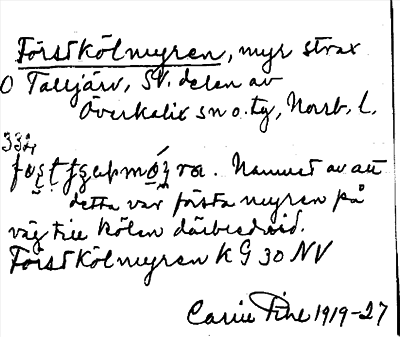 Förstkölmyren, myr strax
O Talljärv, SV. delen av
Överkalix sn o. tg, Norrb. l.
332
. Namnet av att
detta var första myren på
väg till Kölen därbredvid.
Förstkölmyren k G 30 NV
1919-27